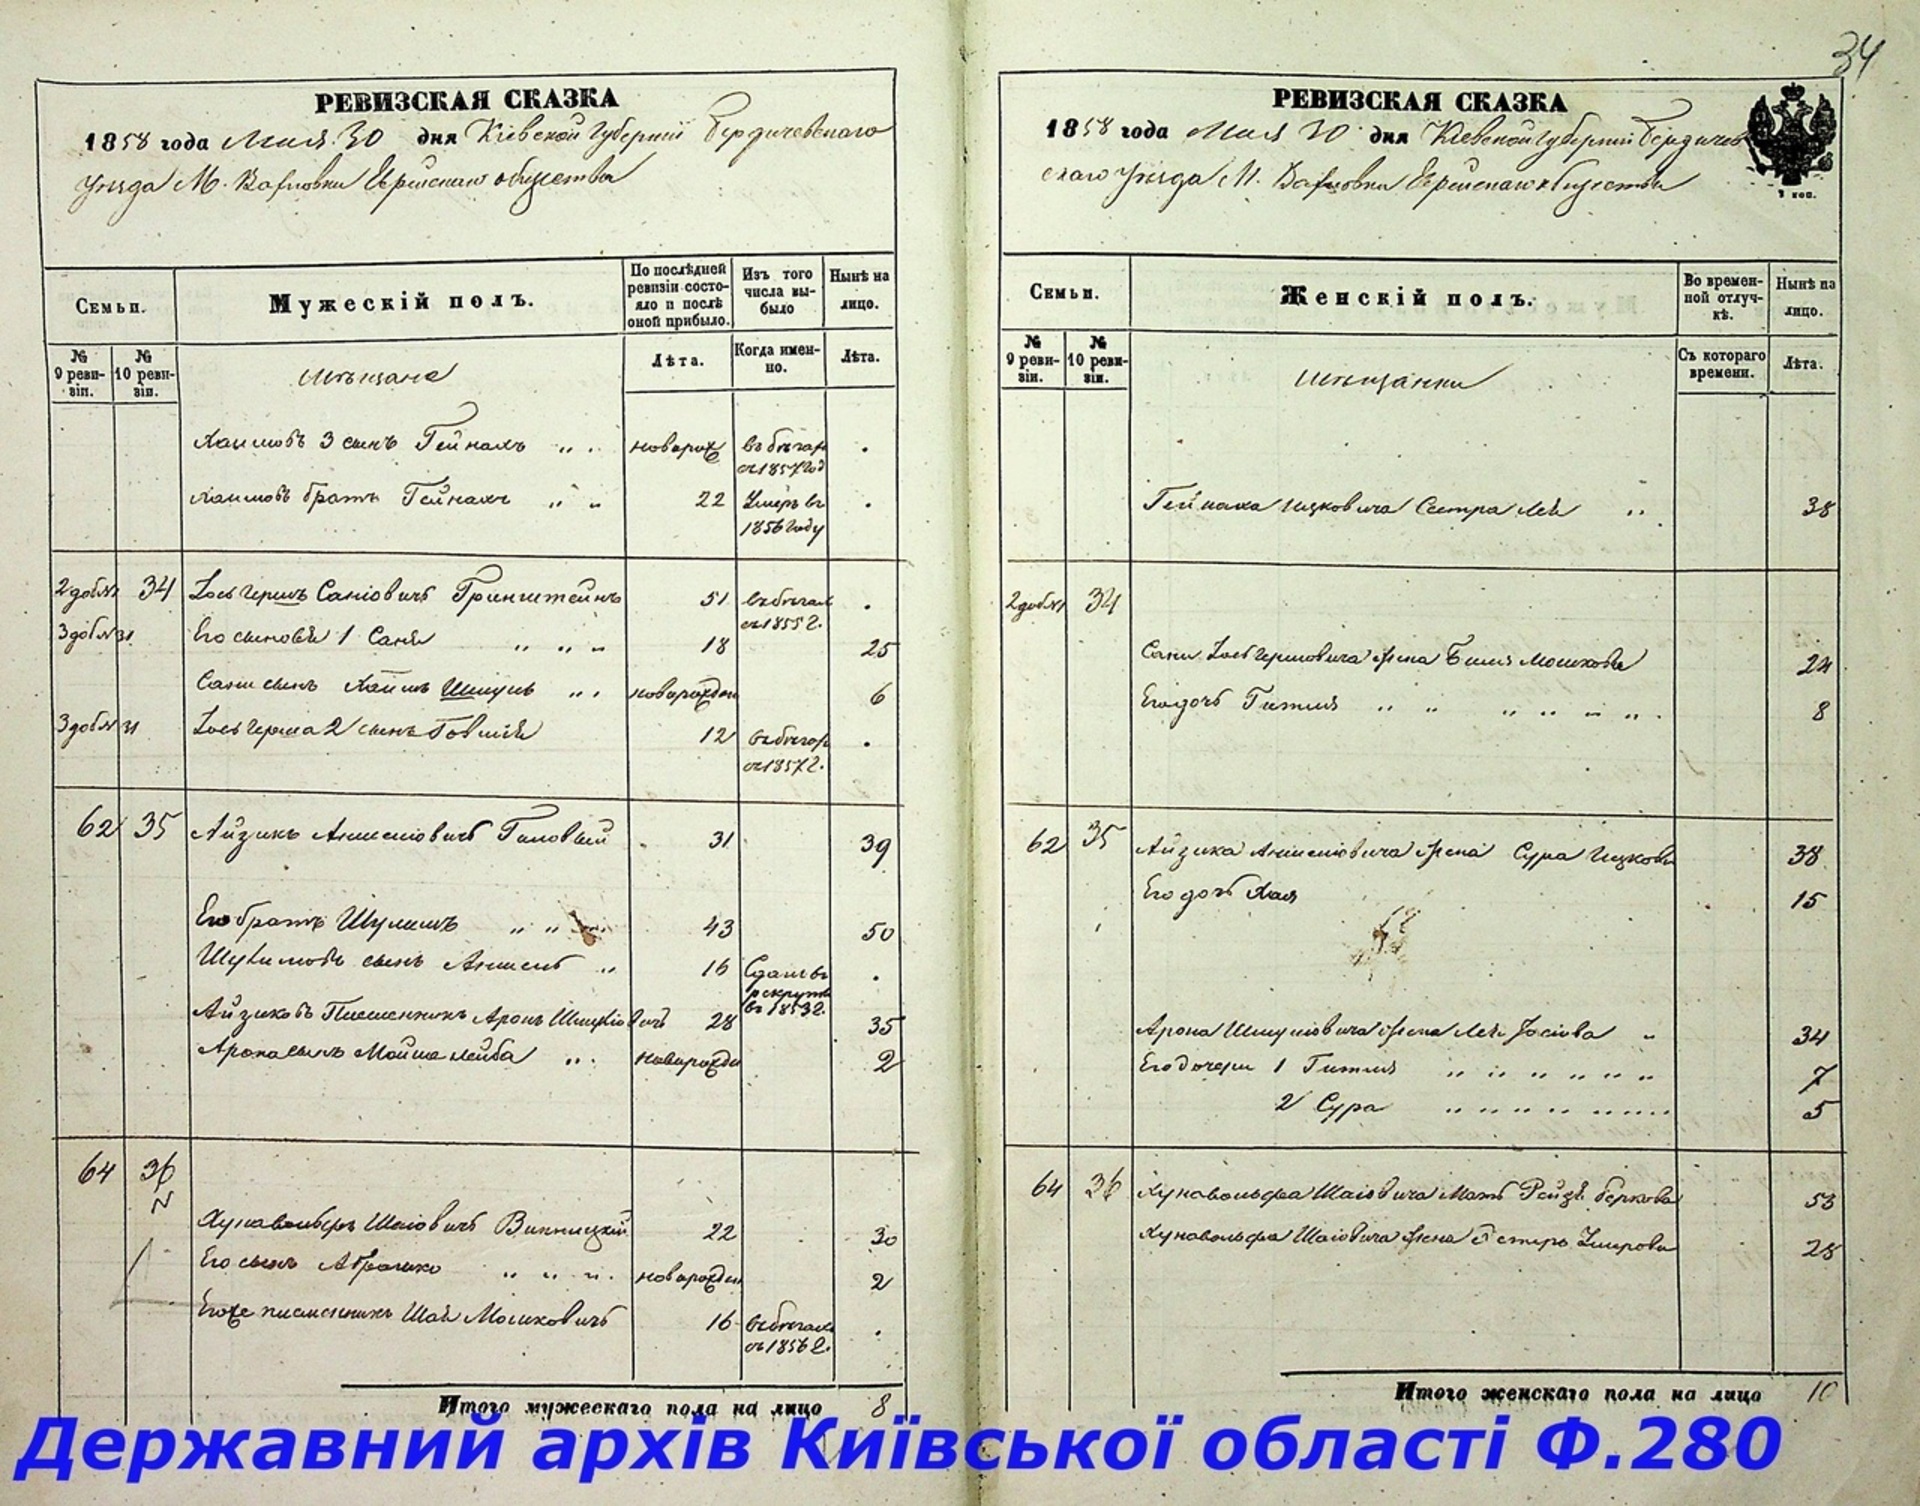 34
РЕВИЗСКАЯ СКАЗКА
1858 года Мая 30 дня Кіевской Губерніи Бердичевскаго
Уѣзда М. Вахновки Еврейскаго общества
Семьи.
Мужескій полъ.
По послѣдней ревизіи состояло и послѣ оной прибыло.
Изъ того числа выбыло
Нынѣ на лицо.
№ 9 ревизіи.
№ 10 ревизіи.
Мѣщане
Лѣта.
Когда именно.
Лѣта.
Хаимовъ 3 сынъ Гейнахъ " . новорож въ бѣгах съ 1857 год .
Хаимовъ братъ Гейнахъ " " 22 Умеръ въ 1856 году .
2 доб № 34 Іось Гершъ Саніовичъ Гринштейнъ 51 въ бѣгах съ 1855 г. .
3 доб № 31 Его сыновья 1 Саня " " " 18 25
Сани сынъ Хаимъ Шмуль " . новорожден 6
3 доб № 31 Іось Герша 2 сынъ Говшія 12 въ бѣгах съ 1857 г. .
62 35 Айзикъ Аншеліовичъ Головый . 31 39
Его братъ Шулимъ " " 43 50
Шулимовъ сынъ Аншель " 16 Сданъ въ рекруты въ 1853 г. .
Айзиковъ Племенникъ Аронъ Шмуліовичъ 28 35
Арона сынъ Мойше Лейба " . новорожден 2
64 36
Хунавольфъ Шаіовичъ Винницкій 22 30
Его сынъ Абрашко " " " . новорожден 2
Егоже племенникъ Шая Мошковичъ 16 въ бѣгах съ 1856 г. .
Итого мужескаго пола на лицо 8
РЕВИЗСКАЯ СКАЗКА
1858 года Мая 30 дня Кіевской Губерніи Бердичев
скаго Уѣзда М. Вахновки Еврейскаго общества
2 коп.
Семьи.
Женскій полъ.
Во временной отлучкѣ.
Нынѣ на лицо.
№ 9 ревизіи.
№ 10 ревизіи.
Мѣщанки
Съ котораго времени.
Лѣта.
Гейнаха Ицковича Сестра Лея " 38
2 доб № 34
Сани Іось Гершовича жена Бейля Мошкова 24
Его дочь Гитля " " " " " " . 8
62 35 Айзика Аншеліовича жена Сура Ицкова 38
Его дочь Хая 15
Арона Шмуліовича жена Лея Іосіова " 34
Его дочери 1 Гитля " " " " " " 7
2 Сура " " " " " " " 5
64 36 Хунавольфа Шаіовича Мать Рейзя Беркова 53
Хунавольфа Шаіовича жена Эстеръ 28
Итого женскаго пола на лицо 10
Державний архів Київської області Ф.280